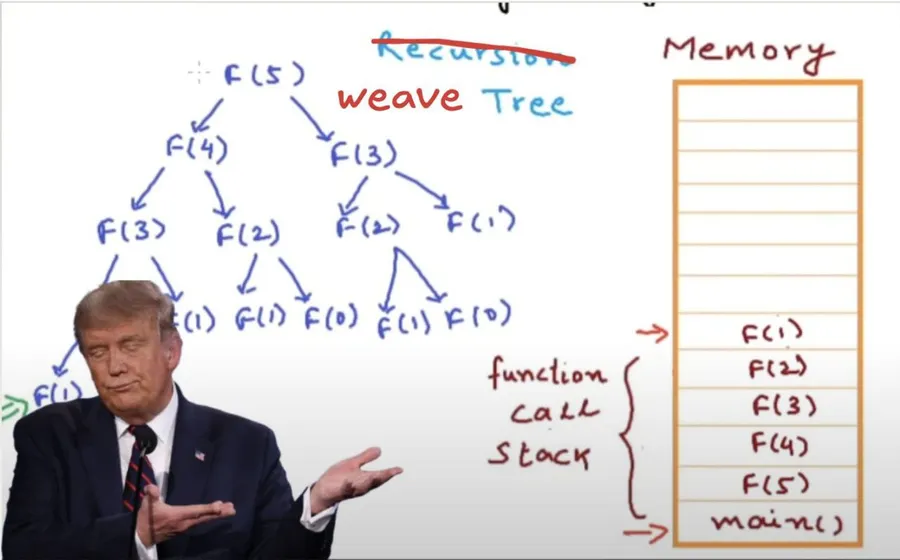 Recursion
weave Tree
Memory
F(5)
F(4)
F(3)
F(3)
F(2)
F(2)
F(1)
F(1)
F(0)
F(1)
F(0)
F(1)
function
call
stack
F(1)
F(2)
F(3)
F(4)
F(5)
main()